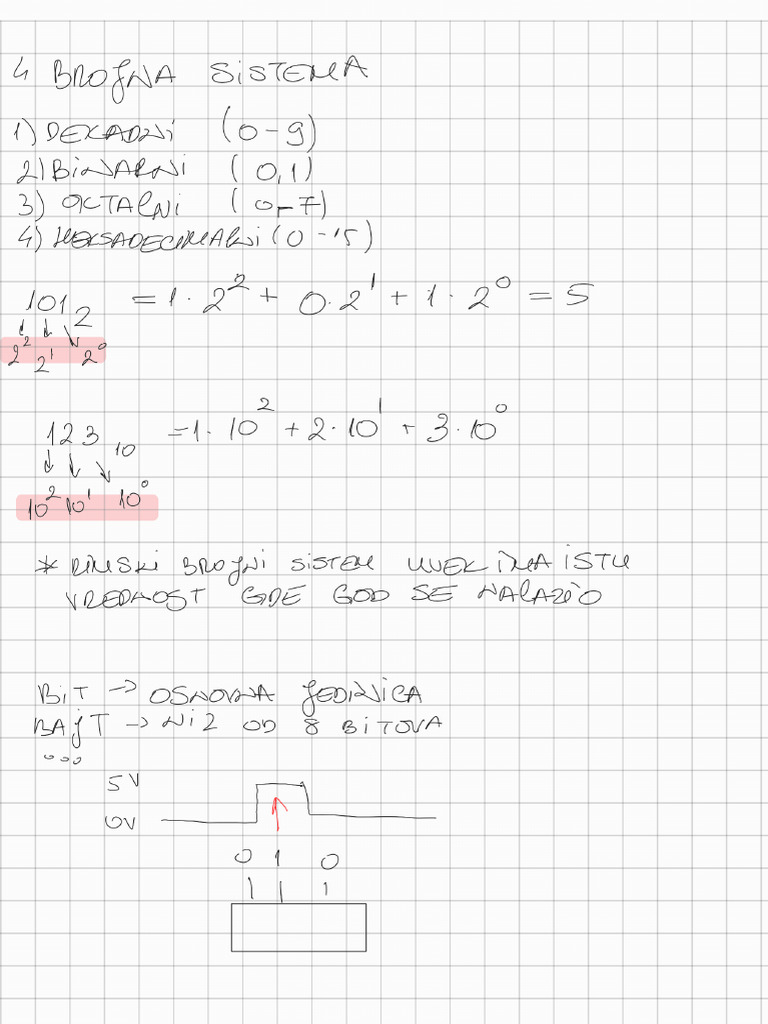 4 BROJNA SISTEMA
1) DEKADNI (0-9)
2) BINARNI (0,1)
3) OKTALNI (0-7)
4) HEKSADECIMALNI (0-15)
101₂ = 1·2² + 0·2¹ + 1·2⁰ = 5
2² 2¹ 2⁰
123₁₀ = 1·10² + 2·10¹ + 3·10⁰
10² 10¹ 10⁰
* RIMSKI BROJNI SISTEM UVEK IMA ISTU
VREDNOST GDE GOD SE NALAZIO
BIT → OSNOVNA JEDINICA
BAJT → NIZ OD 8 BITOVA
...
5V
0V
0 1 0